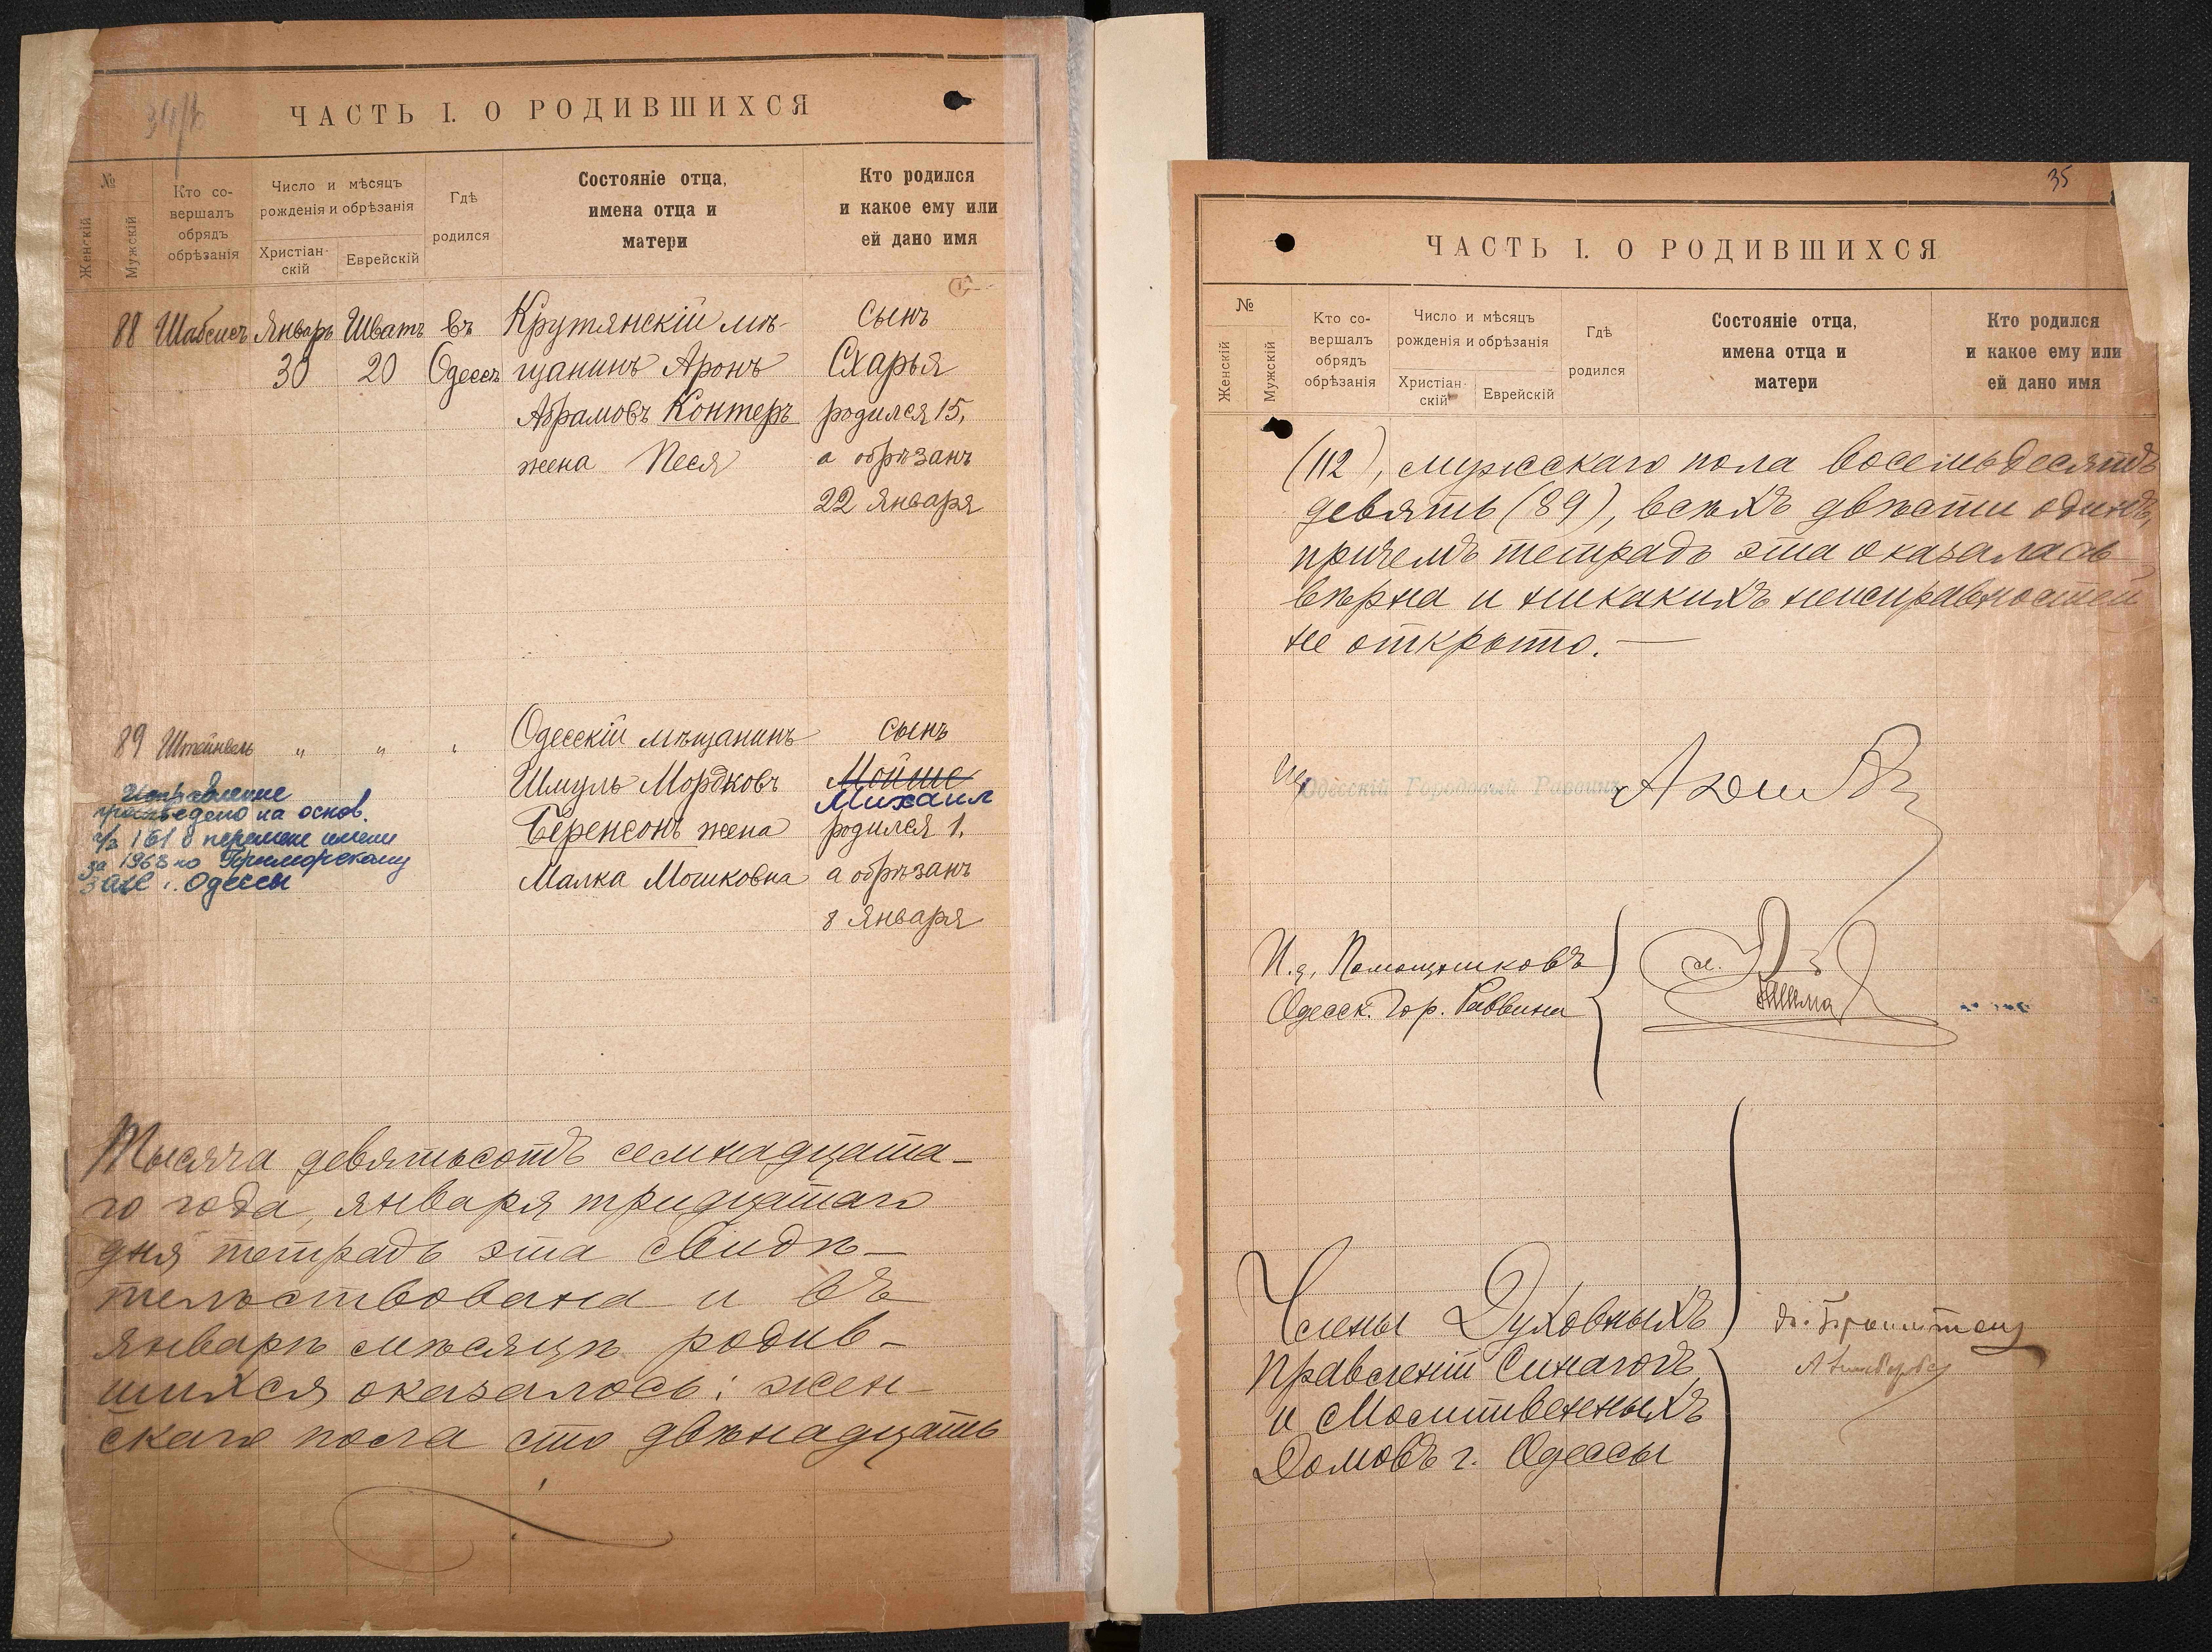 ЧАСТЬ I. О РОДИВШИХСЯ
№
Женскій
Мужскій
Кто со-
вершалъ
обрядъ
обрѣзанія
Число и мѣсяцъ
рожденія и обрѣзанія
Христіан-
скій
Еврейскій
Гдѣ
родился
Состояніе отца,
имена отца и
матери
Кто родился
и какое ему или
ей дано имя
88 Шабсисъ Январь Шватъ въ Крутянскій мѣ- сынъ
30 20 Одессѣ щанинъ Аронъ Схарья
Абрамовъ Контеръ родился 15,
жена Песя а обрѣзанъ
22 Января
89 Штейнвель " " " Одесскій мѣщанинъ сынъ
Шмуль Мордковъ Мойше
Михаил
Беренсонъ жена родился 1,
Малка Мошковна а обрѣзанъ
8 Января
Исправление
произведено на основ.
а/з 161 о перемене имени
за 1968 по Приморскому
ЗАГС г. Одессы
Тысяча девятьсотъ семнадцата-
го года, января тридцатаго
дня тетрадь эта свидѣ-
тельствована и въ
январѣ мѣсяцѣ родив-
шихся оказалось: жен-
скаго пола сто двѣнадцать
35
ЧАСТЬ I. О РОДИВШИХСЯ
№
Женскій
Мужскій
Кто со-
вершалъ
обрядъ
обрѣзанія
Число и мѣсяцъ
рожденія и обрѣзанія
Христіан-
скій
Еврейскій
Гдѣ
родился
Состояніе отца,
имена отца и
матери
Кто родился
и какое ему или
ей дано имя
(112), мужскаго пола восемьдесятъ
девять (89), всѣхъ двѣсти одинъ,
причемъ тетрадь эта оказалась
вѣрна и никакихъ неисправностей
не открыто.—
Одесскій Городовой Раввинъ
И.д. Помощниковъ
Одесск. Гор. Раввина
Члены Духовныхъ
Правленій Синагогъ
и Молитвенныхъ
Домовъ г. Одессы